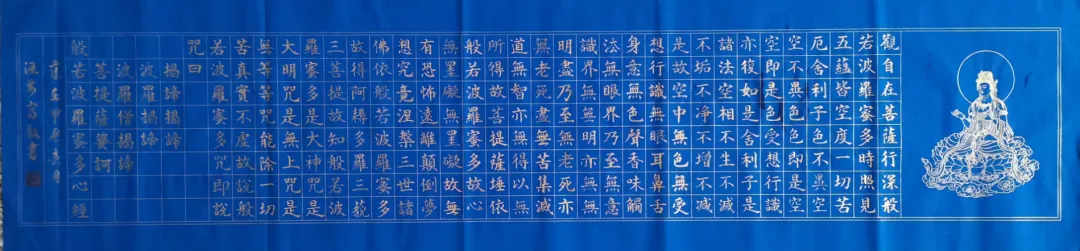 觀自在菩薩行深般
若波羅蜜多時照見
五蘊皆空度一切苦
厄舍利子色不異空
空不異色色即是空
空即是色受想行識
亦復如是舍利子是
諸法空相不生不滅
不垢不淨不增不減
是故空中無色無受
想行識無眼耳鼻舌
身意無色聲香味觸
法無眼界乃至無意
識界無無明亦無無
明盡乃至無老死亦
無老死盡無苦集滅
道無智亦無得以無
所得故菩提薩埵依
般若波羅蜜多故心
無罣礙無罣礙故無
有恐怖遠離顛倒夢
想究竟涅槃三世諸
佛依般若波羅蜜多
故得阿耨多羅三藐
三菩提故知般若波
羅蜜多是大神咒是
大明咒是無上咒是
無等等咒能除一切
苦真實不虛故說般
若波羅蜜多咒即說
咒曰
揭諦揭諦
波羅揭諦
波羅僧揭諦
菩提薩婆訶
般若波羅蜜多心經
甲辰
敬書